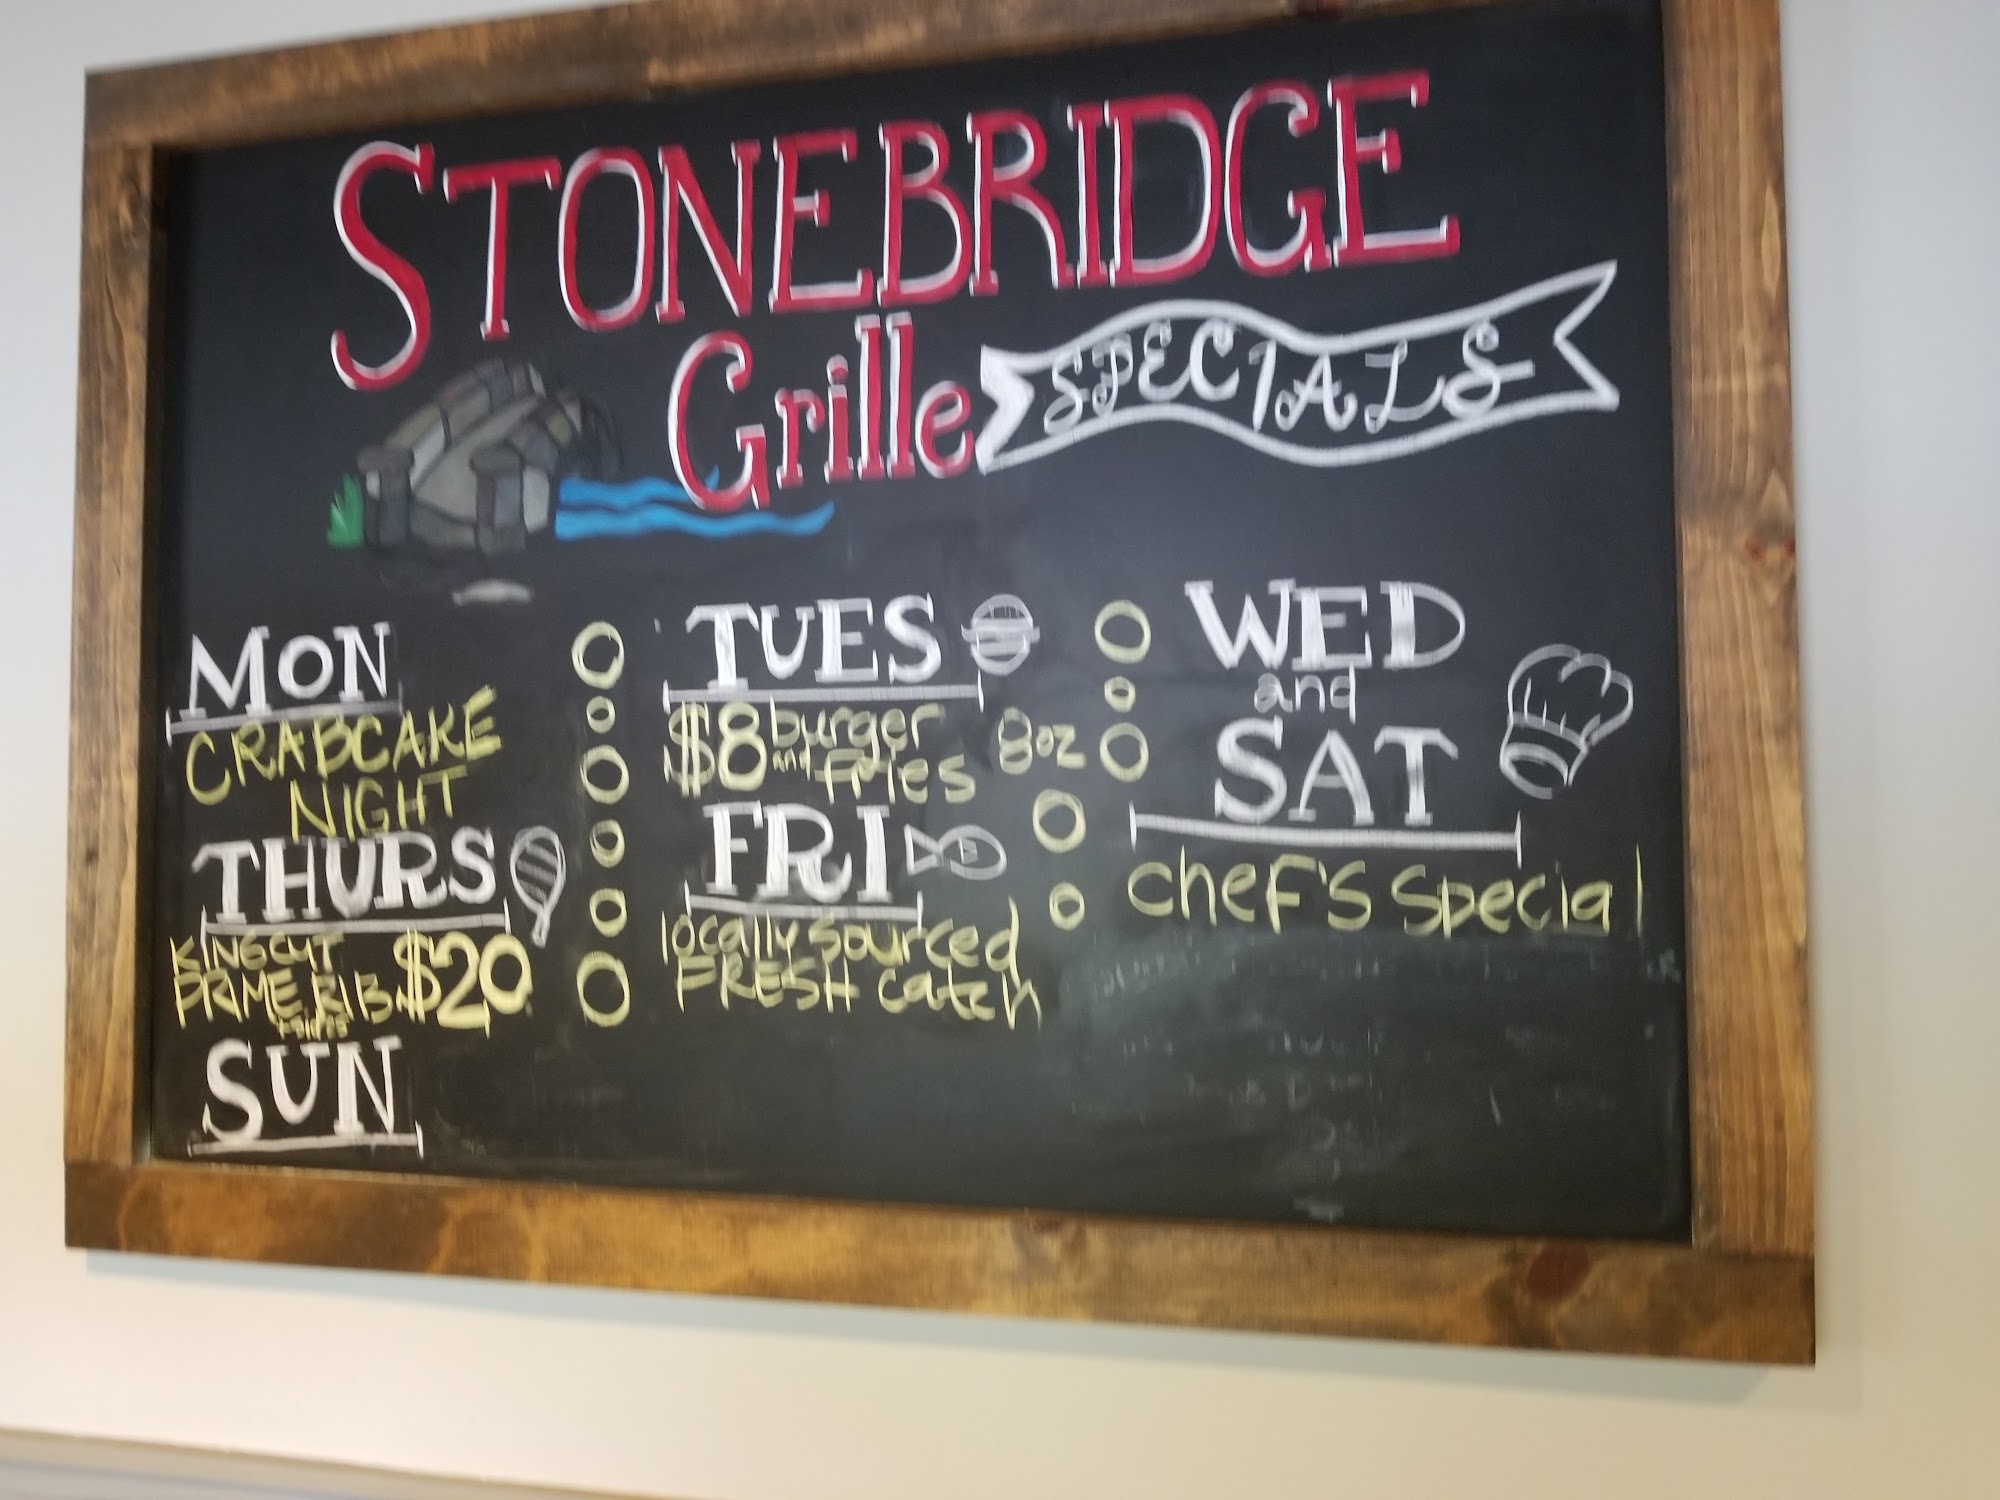 STONEBRIDGE
Grille
SPECIALS
MON
CRABCAKE
NIGHT
THURS
KING CUT
PRIME RIB $20
SUN
TUES
$8 burger
$8 and fries 8oz
FRI
locally sourced
FRESH catch
WED
and
SAT
chef's special